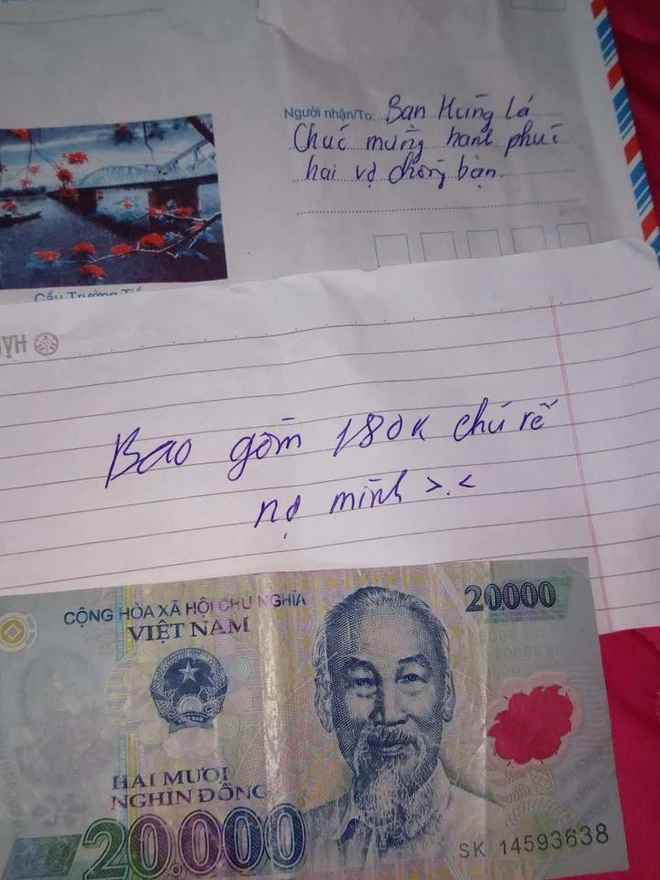 Người nhận/To: Bạn Hùng Lá
Chúc mừng hạnh phúc
hai vợ chồng bạn.
Cầu Trường Tiền
HẢI
Bao gồm 180K chú rể
nợ mình >.<
CỘNG HÒA XÃ HỘI CHỦ NGHĨA
VIỆT NAM
20000
HAI MƯƠI
NGHÌN ĐỒNG
20.000
SK 14593638